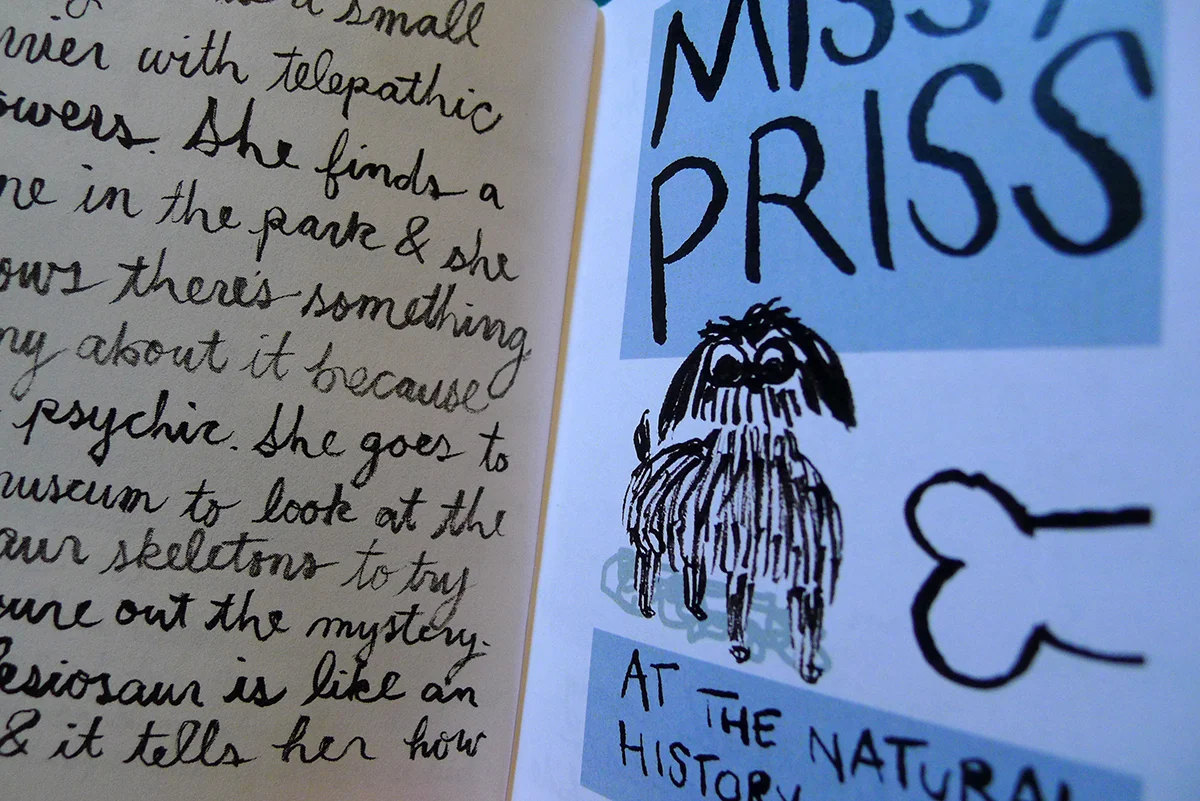 a small
rrier with telepathic
owers. She finds a
ne in the park & she
ows there's something
ny about it because
psychic. She goes to
museum to look at the
aur skeletons to try
gure out the mystery.
lesiosaur is like an
& it tells her how
MISSY
PRISS
AT THE NATURAL
HISTORY